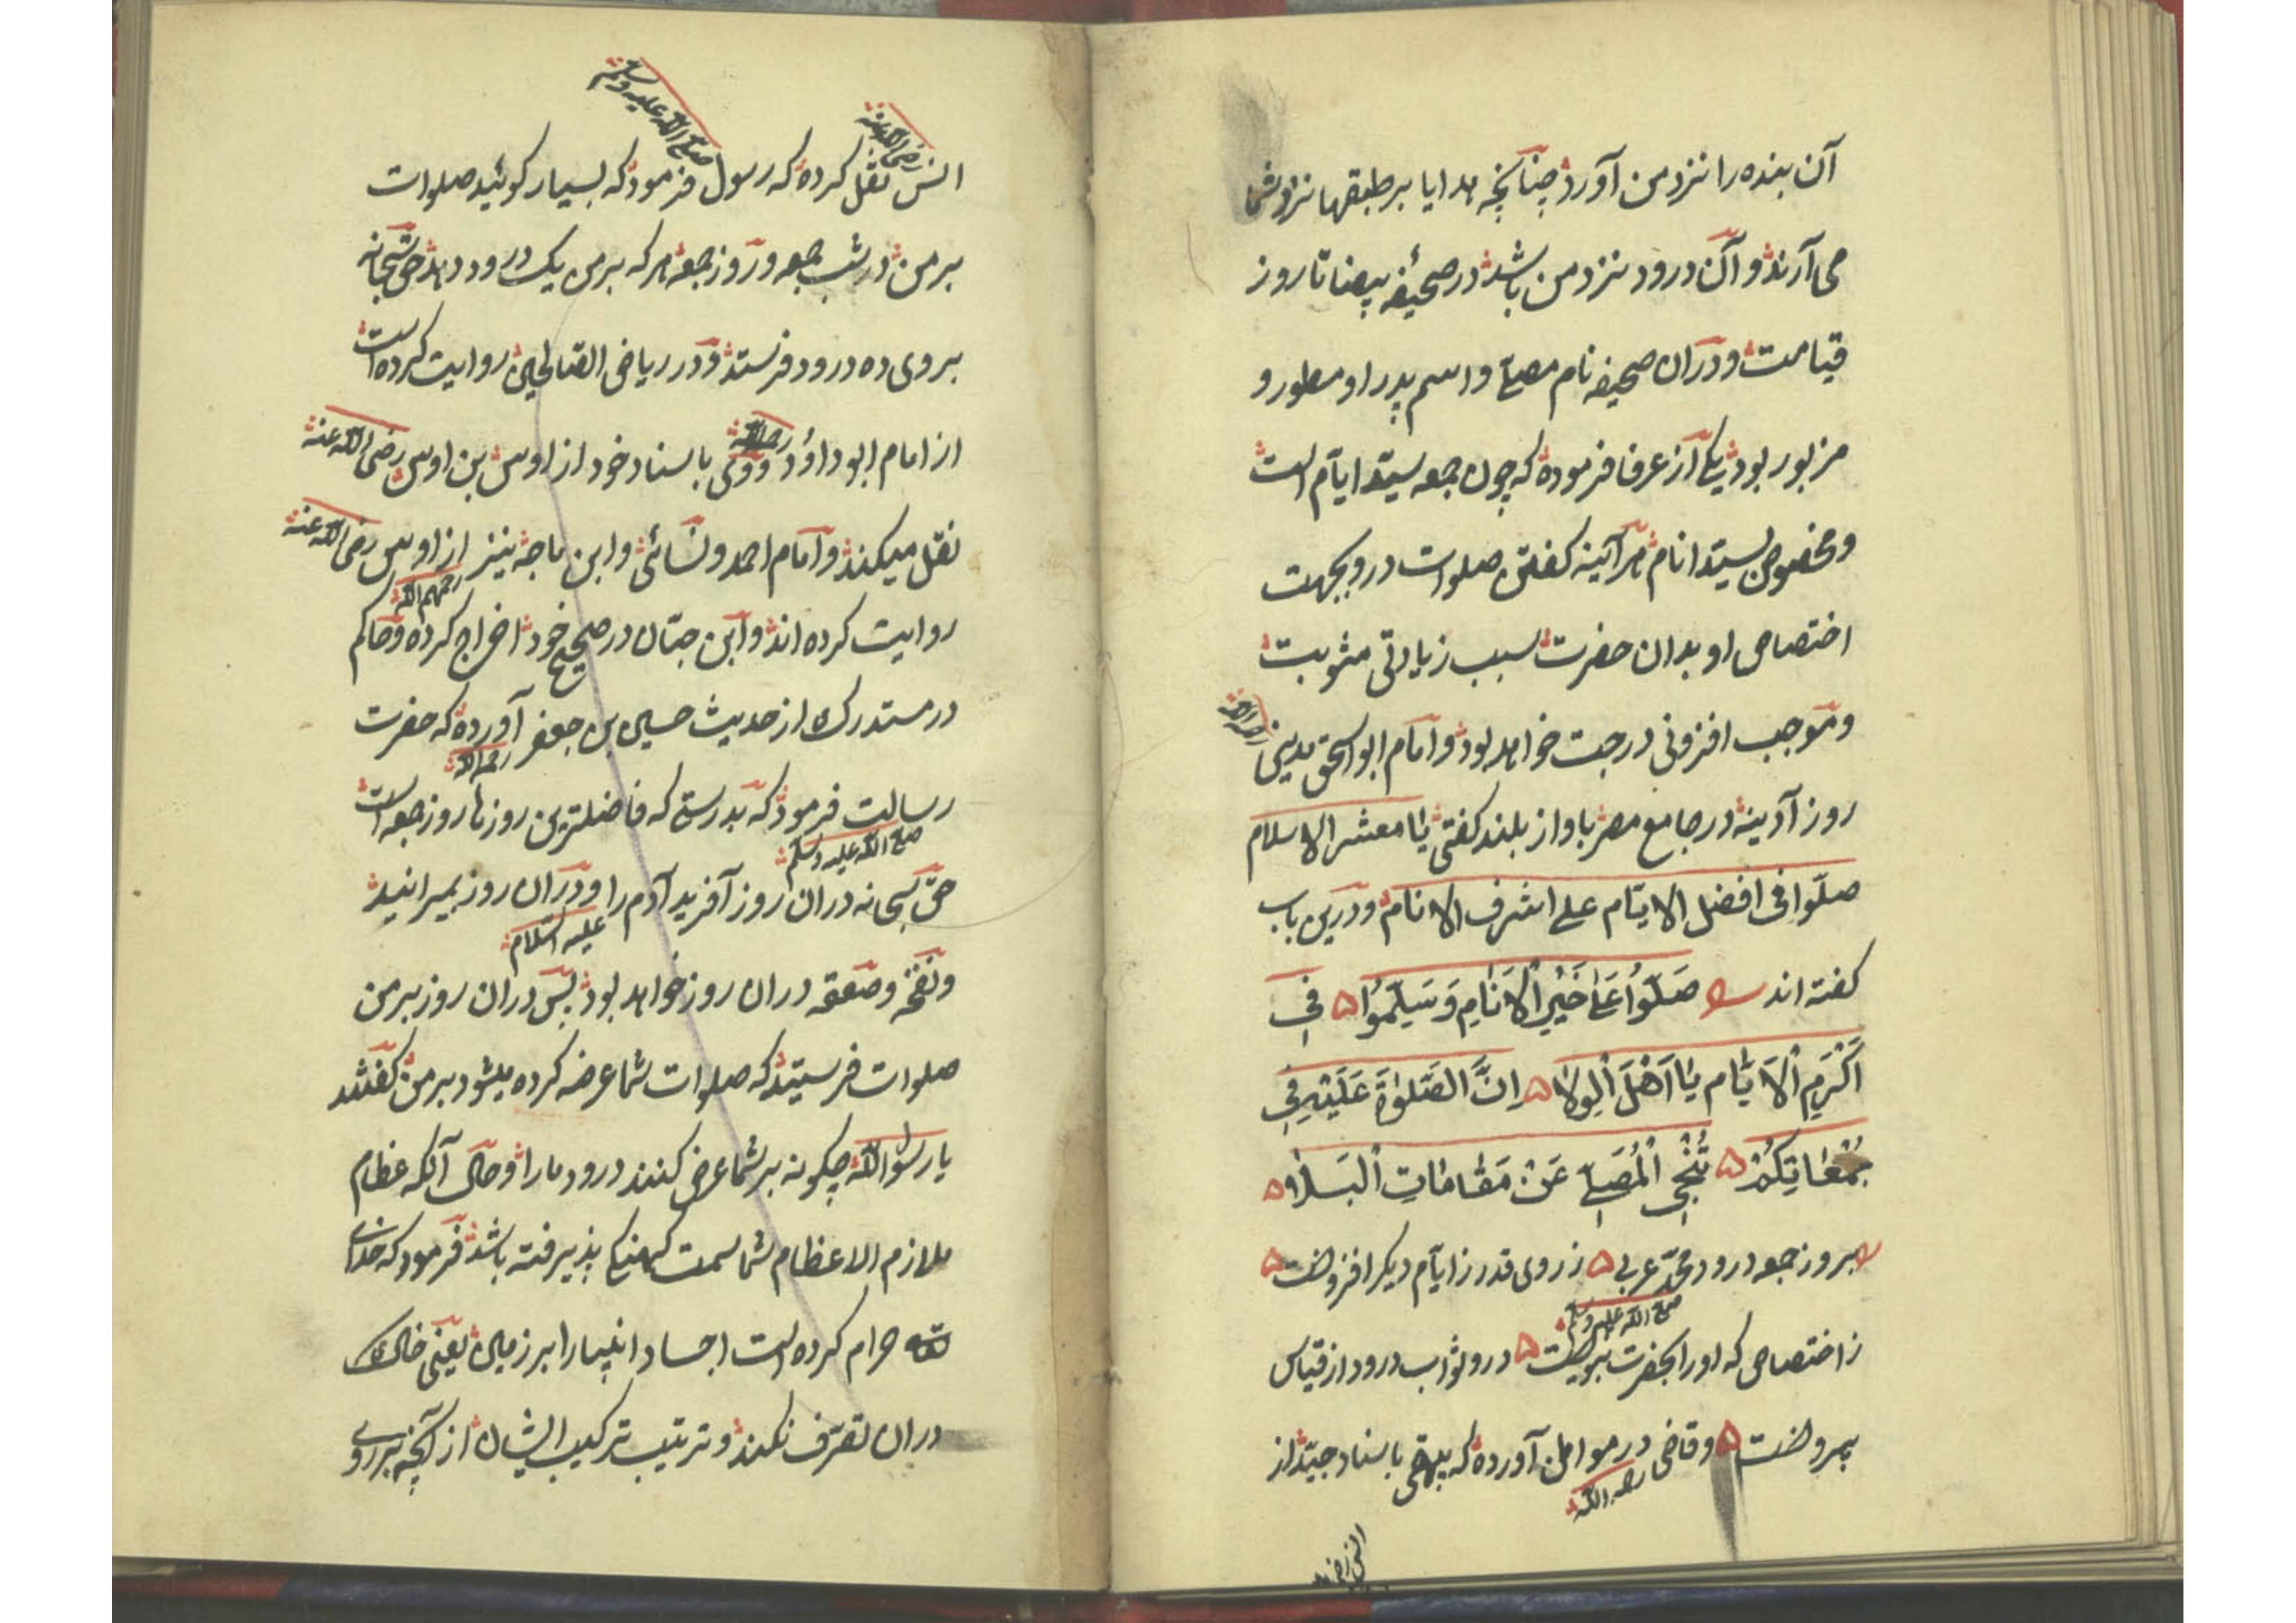 آن بنده را نزد من آورد چنانچه هدایا بر طبقها نزد شما
می آرند و آن درود نزد من باشد در صحیفه بیضا تا روز
قیامت و دران صحیفه نام مصلی و اسم پدر او مسطور و
مزبور بود یکی از عرفا فرموده که چون جمعه سیّد ایّام است
و مخصوص بسیّد انام هر آینه گفتن صلوات درو بجهت
اختصاص او بدان حضرت سبب زیادتی مثوبت
و موجب افزونی درجت خواهد بود و امام ابو اسحق مدینی
روز آدینه در جامع مصر باواز بلند گفتی یا معشر الاسلام
صلّوا فی افضل الایّام علی اشرف الانام و درین باب
گفته اند صَلّوُا عَلیٰ خَیْرِ الْاَنَامِ وَسَلِّمُوُا ه فِی
اَکْرَمِ الْاَیّام یٰا اَهْلَ الْوِلاٰ ه اِنَّ الصَّلوٰةَ عَلَیْهِ فِی
جُمُعَاتِکُمْ ه تُنْجِی الْمُصَلّی عَنْ مَقٰامٰاتِ الْبَلاٰ ه
بروز جمعه درود محمّد عربی ه ز روی قدر ز ایّام دیگر افزونست ه
صلی الله علیه وسلم
ز اختصاص که او را بحضرت نبویست ه درو ثواب درود از قیاس
بیرونست ه و قاضی در موامل آورده که بیهقی باسناد جیّد از
رحمه الله
انس رضی
رضی الله عنه
صلی الله علیه وسلم
انس نقل کرده که رسول فرمود که بسیار گوئید صلوات
بر من در شب جمعه و روز جمعه هر که بر من یک درود دهد حق سبحانه
بر وی ده درود فرستد و در ریاض الصّالحین روایت کرده است
از امام ابو داؤد و وی باسناد خود از اوس بن اوس رضی الله عنه
نقل میکند و امام احمد و نسائی و ابن ماجه نیز از اوس رضی الله عنه
رحمهم الله
روایت کرده اند و ابن حبّان در صحیح خود اخراج کرده و حاکم
در مستدرک از حدیث حسین بن جعفر آورده که حضرت
رحمه الله
رسالت فرمود که بدرستی که فاضلترین روزها روز جمعه است
صلی الله علیه وسلم
حق سبحانه دران روز آفرید آدم را و دران روز بمیرانید
علیه السلام
و نفخه و صعقه دران روز خواهد بود پس دران روز بر من
صلوات فرستید که صلوات شما عرضه کرده میشود بر من گفتند
یا رسول الله چگونه بر شما عرض کنند درود ما را و حال آنکه عظام
ملازم الاعظام شما سمت کهنگی پذیرفته باشد فرمود که خدای
حرام کرده است اجساد انبیا را بر زمین یعنی خاک
دران تصرّف نکند و ترتیب ترکیب ایشان از آنچه بر روی